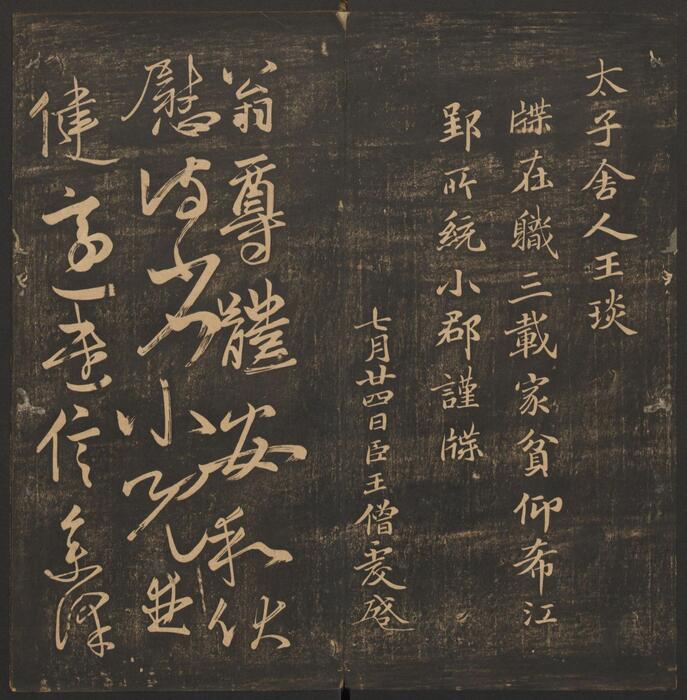 太子舍人王琰
牒在職三載家貧仰希江
郢所統小郡謹牒
七月廿四日臣王僧虔啓
翁尊體安和伏
慰侍省小兒並
健適遣信集澤